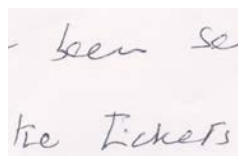 been se
the Tickets